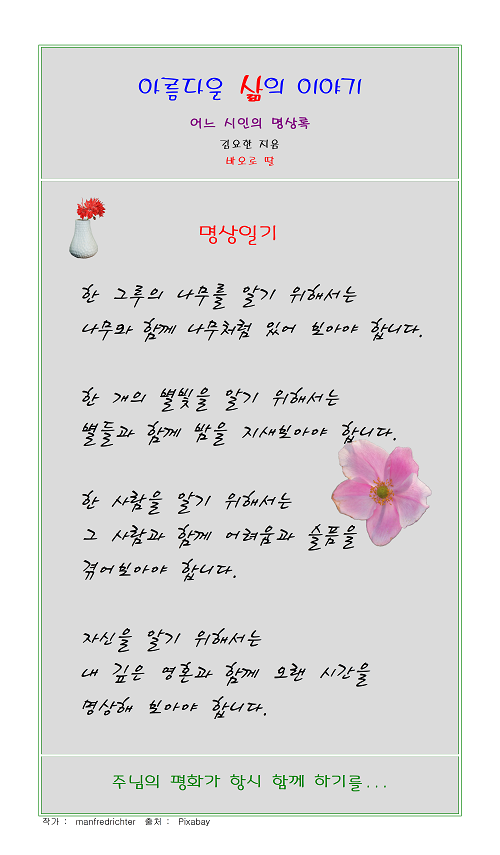 아름다운 삶의 이야기
어느 시인의 명상록
김요한 지음
바오로 딸
명상일기
한 그루의 나무를 알기 위해서는
나무와 함께 나무처럼 있어 보아야 합니다.
한 개의 별빛을 알기 위해서는
별들과 함께 밤을 지새보아야 합니다.
한 사람을 알기 위해서는
그 사람과 함께 어려움과 슬픔을
겪어보아야 합니다.
자신을 알기 위해서는
내 깊은 영혼과 함께 오랜 시간을
명상해 보아야 합니다.
주님의 평화가 항시 함께 하기를...
작가 : manfredrichter 출처 : Pixabay